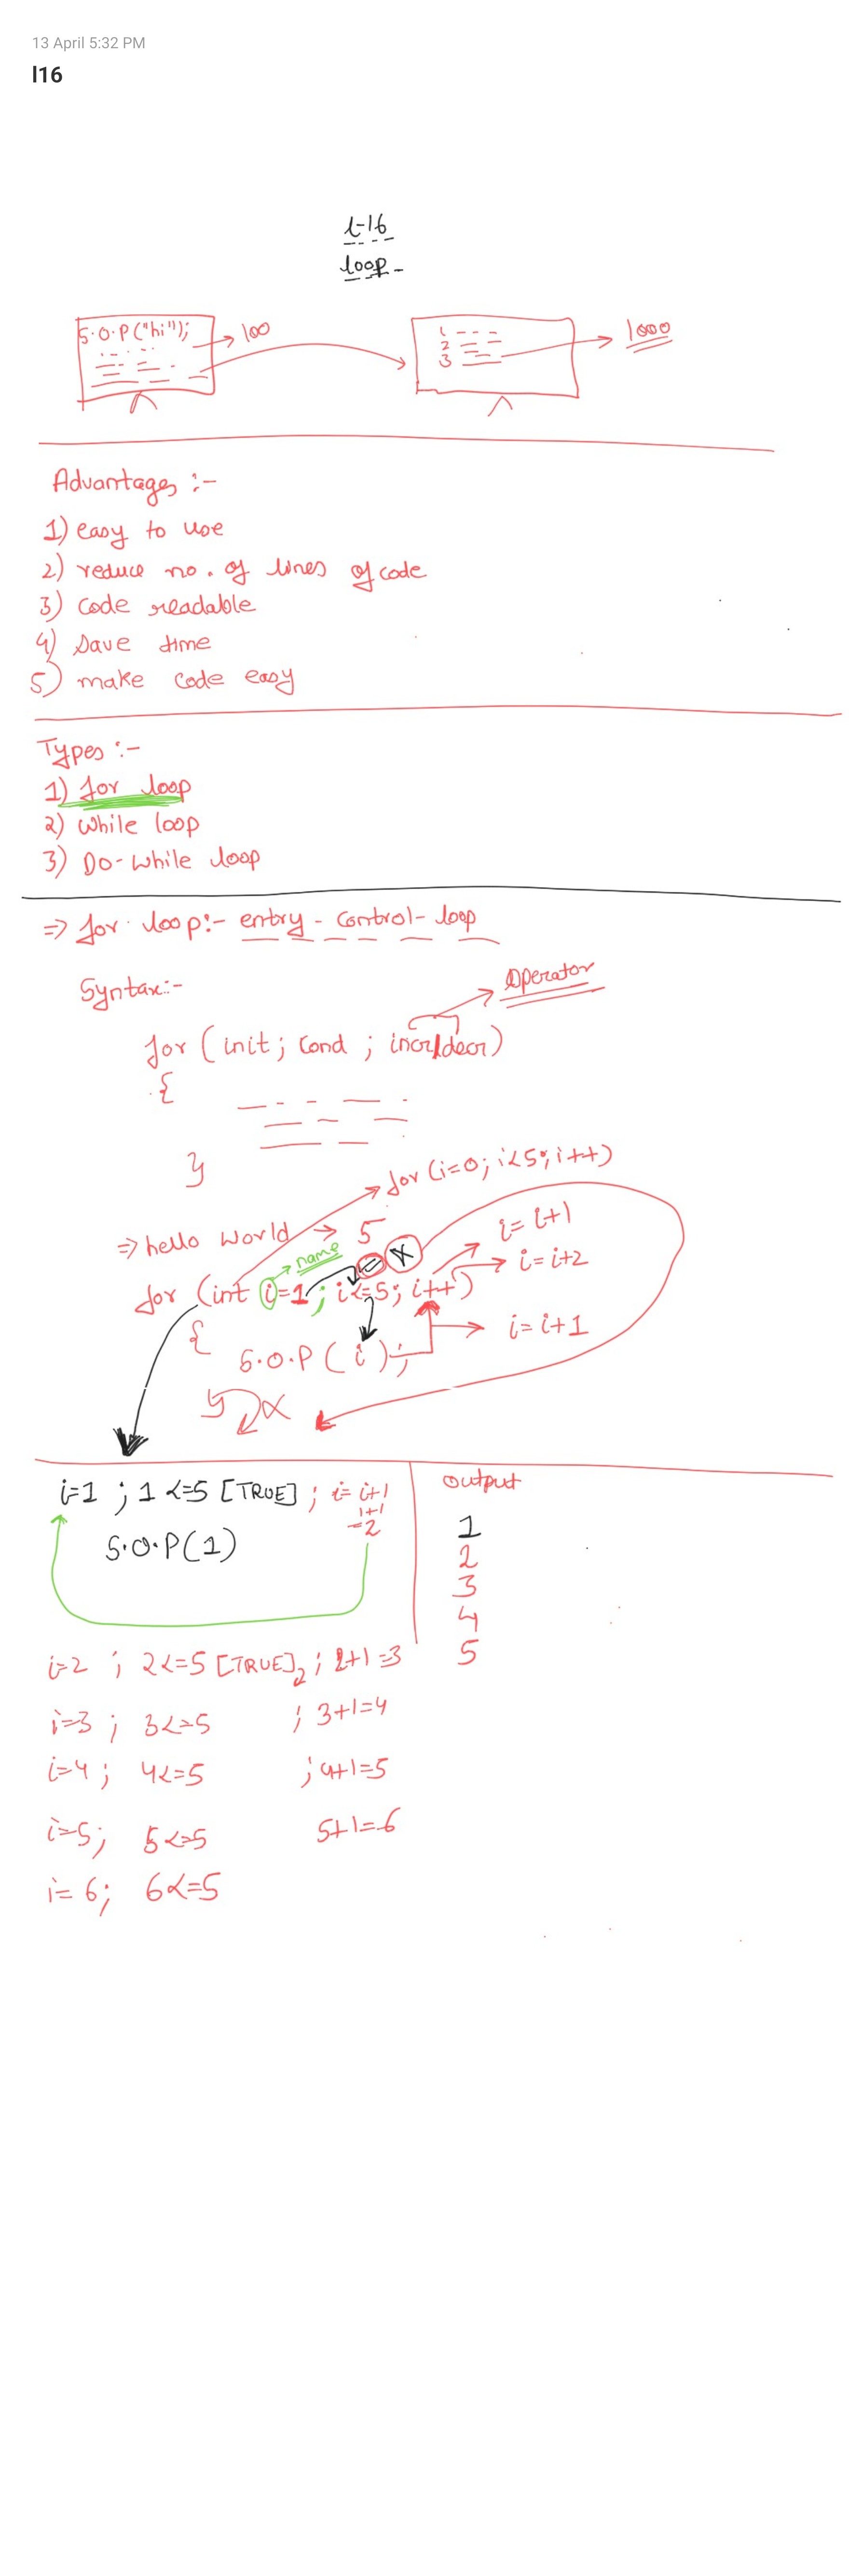 13 April 5:32 PM
l16
L-16
loop
S.O.P("hi");
100
1 - - -
2
3
1000
Advantages :-
1) easy to use
2) reduce no. of lines of code
3) code readable
4) save time
5) make code easy
Types :-
1) for loop
2) While loop
3) Do-while loop
=> for loop:- entry-control-loop
Syntax:-
operator
for (init; cond ; incr/decr)
{
}
for (i=0; i<5; i++)
=> hello world → 5
name
i=i+1
i=i+2
for (int i=1; i<=5; i++)
{
i=i+1
S.O.P(i);
}
i=1 ; 1<=5 [TRUE] ; i=i+1
1+1
=2
S.O.P(1)
output
1
2
3
4
5
i=2 ; 2<=5 [TRUE] ; 2+1=3
i=3 ; 3<=5 ; 3+1=4
i=4 ; 4<=5 ; 4+1=5
i=5; 5<=5 5+1=6
i=6; 6<=5